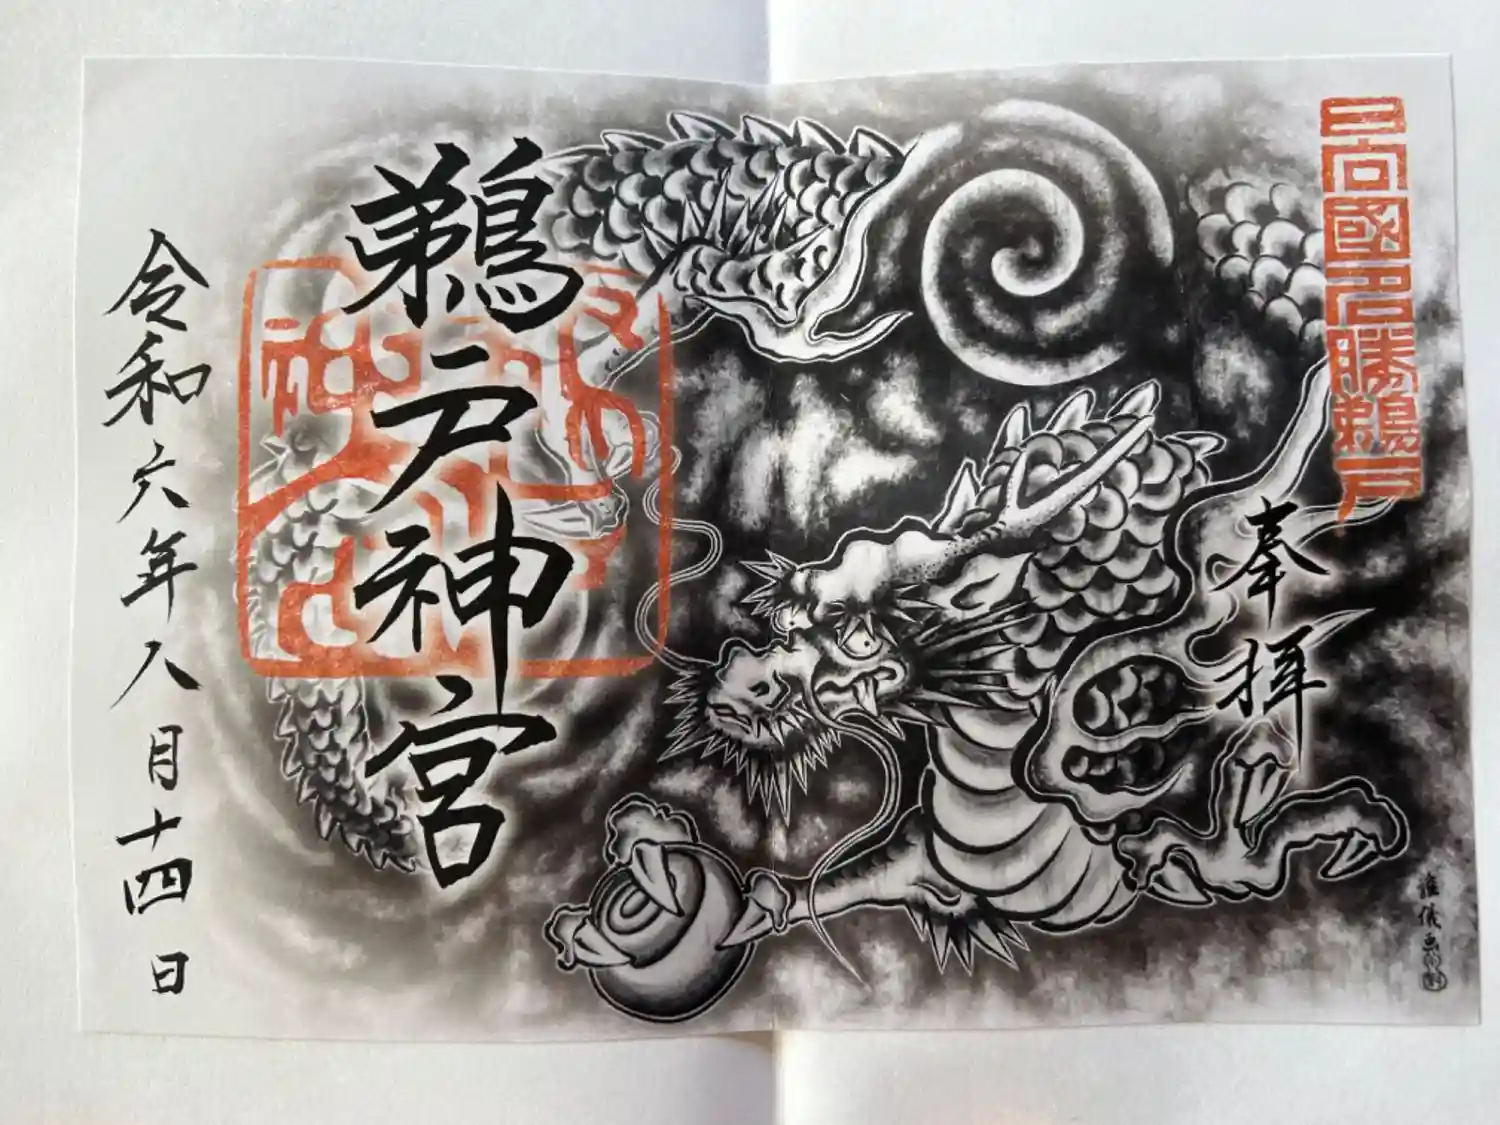 日向國名勝鵜戸
奉拝
鵜戸神宮
令和六年八月十四日